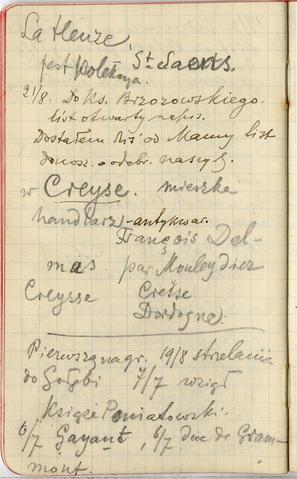 La Heuze,
jest kolekcya. St. Saëns.
21/8. Do Ks. Brzozowskiego.
list otwarty napis.
Dostałem dziś od Mamy list
donosz. o odebr. naszych.
w Creyse. mieszka
handlarz-antykwar.
François Del-
mas par Mouleydier
Creysse Creïsse
Dordogne.
Pierwsza nagr. 19/8 strzelanie
do Gołębi 7/7 wziął
Książe Poniatowski.
6/7 Gayant, 6/7 duc de Gram-
mont.